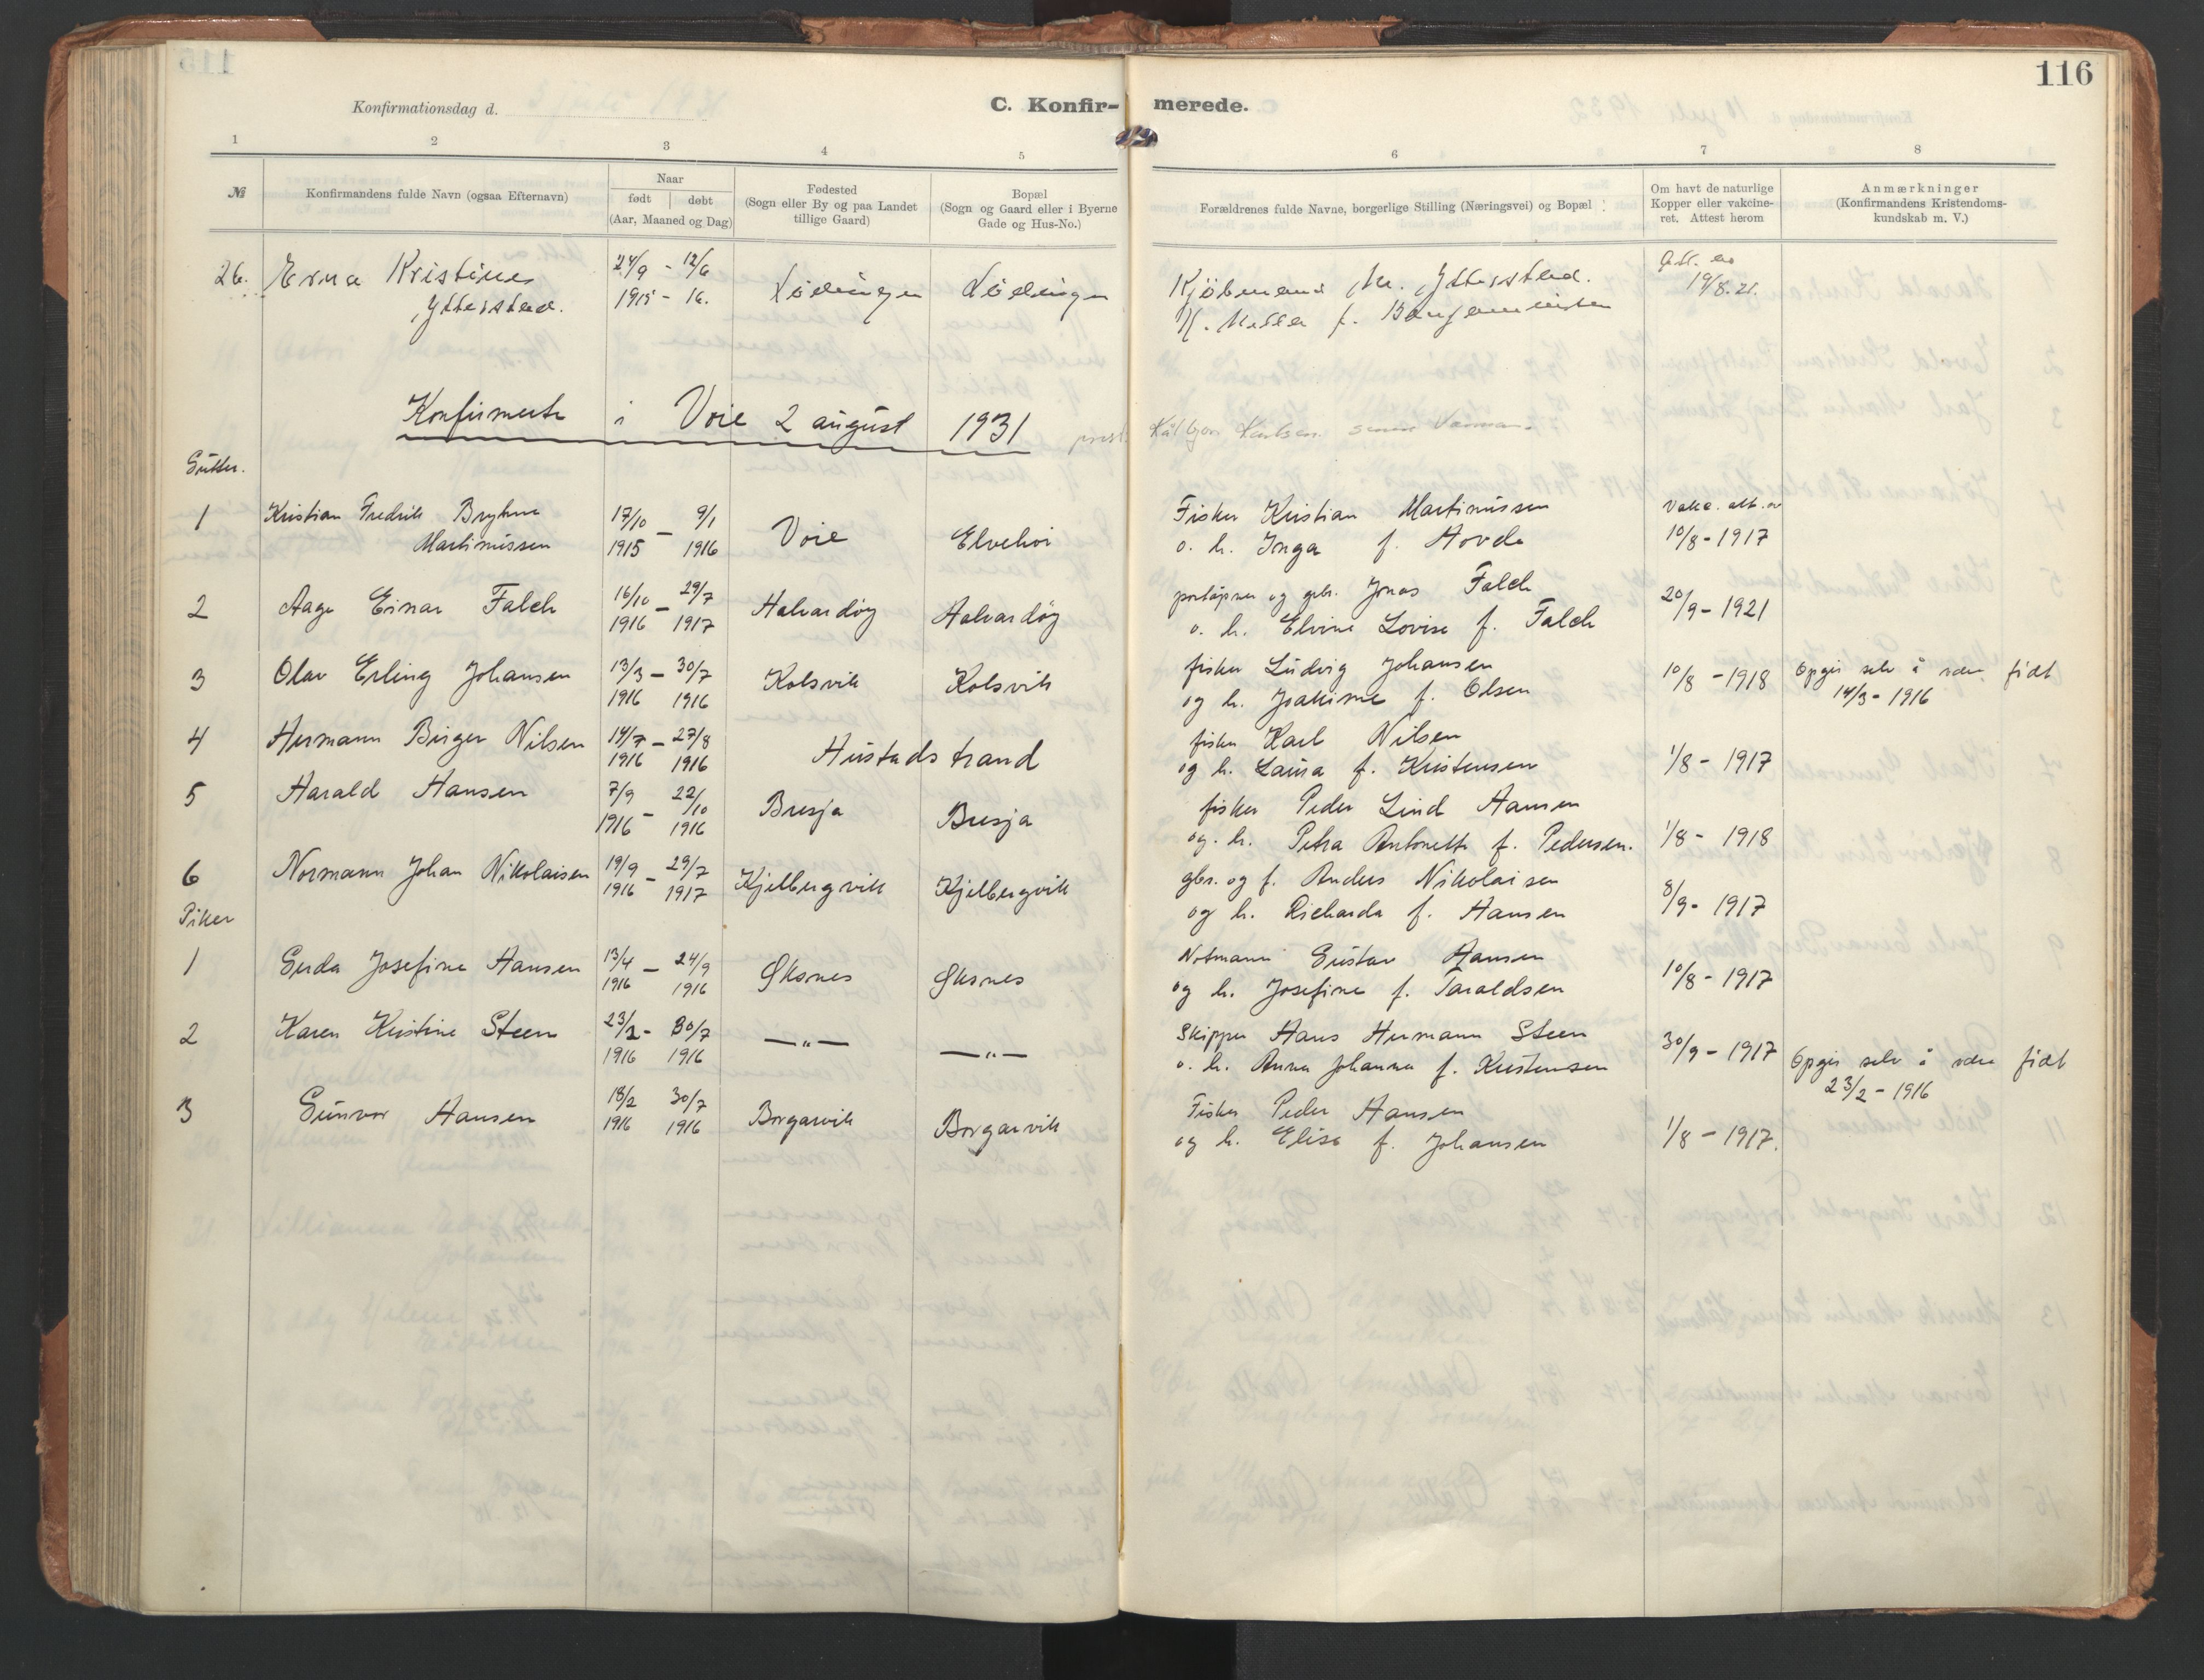 116
Konfirmationsdag d.
C. Konfir- merede.
1 2 3 4 5 6 7 8
№
Konfirmandens fulde Navn (ogsaa Efternavn)
Naar
født døbt
(Aar, Maaned og Dag)
Fødested
(Sogn eller By og paa Landet
tillige Gaard)
Bopæl
(Sogn og Gaard eller i Byerne
Gade og Hus-No.)
Forældrenes fulde Navne, borgerlige Stilling (Næringsvei) og Bopæl
Om havt de naturlige
Kopper eller vakcine-
ret. Attest herom
Anmærkninger
(Konfirmandens Kristendoms-
kundskab m. V.)
26. Erna Kristine 24/9 - 12/6 Lødingen Lødingen Kjøbmand M. Ytterstad. Att. av
Ytterstad. 1915 - 16. H. f. Benjaminsen 19/8.21.
Konfirmerte i Voie 2 august 1931 prest
Gutter.
1 Kristian Fredrik Bryhne 17/10 - 9/1 Voie Elvehøi Fisker Kristian Martinussen Vakc. att. av
Martinussen 1915 1916 o. h. Inga f. Hovde 10/8 - 1917
2 Aage Einar Falch 16/10 - 29/7 Halvardøy Halvardøy poståpner og gbr. Jonas Falch 20/9 - 1921
1916 1917 o. h. Elvine Lovise f. Falch
3 Olav Erling Johansen 13/3 - 30/7 Kolsvik Kolsvik fisker Ludvig Johansen 10/8 - 1918 Opgir selv å være født
1916 1916 og h. Joakime f. Olsen 14/3 - 1916
4 Hermann Birger Nilsen 14/7 - 27/8 Hustadstrand fisker Karl Nilsen
1916 1916 og h. Laura f. Kristensen 1/8 - 1917
5 Harald Hansen 7/9 - 22/10 Bresja Bresja fisker Peder Lind Hansen
1916 1916 og. h. Petra Antonette f. Pedersen. 1/8 - 1918
6 Normann Johan Nikolaisen 19/9 - 29/7 Kjelbergvik Kjelbergvik gbr. og f. Anders Nikolaisen
1916 1917 og h. Richarda f. Hansen 8/9 - 1917
Piker
1 Gerda Josefine Hansen 13/4 - 24/9 Øksnes Øksnes Notmann Gustav Hansen
1916 1916 og h. Josefine f. Taraldsen 10/8 - 1917
2 Karen Kristine Steen 23/1 - 30/7 —"— —"— Skipper Hans Hermann Steen
1916 1916 o. h. Anna Johanna f. Kristensen 30/9 - 1917 Opgir selv å være født
23/2 - 1916
3 Gunvor Hansen 18/2 30/7 Borgarvik Borgarvik Fisker Peder Hansen
1916 1916 og h. Elise f. Johansen 1/8 - 1917.